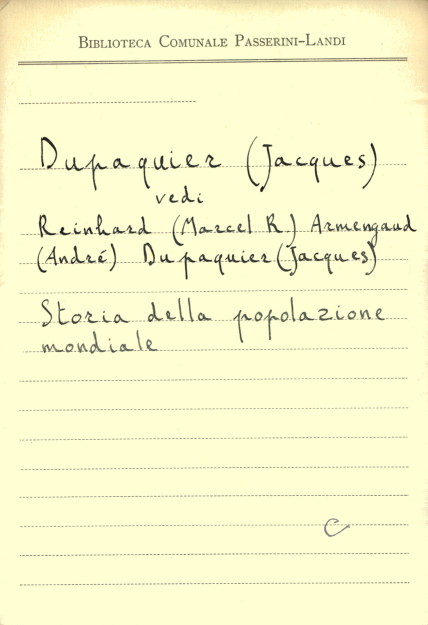 Biblioteca Comunale Passerini-Landi
Dupaquier (Jacques)
vedi
Reinhard (Marcel R.) Armengaud
(André) Dupaquier (Jacques)
Storia della popolazione
mondiale
C